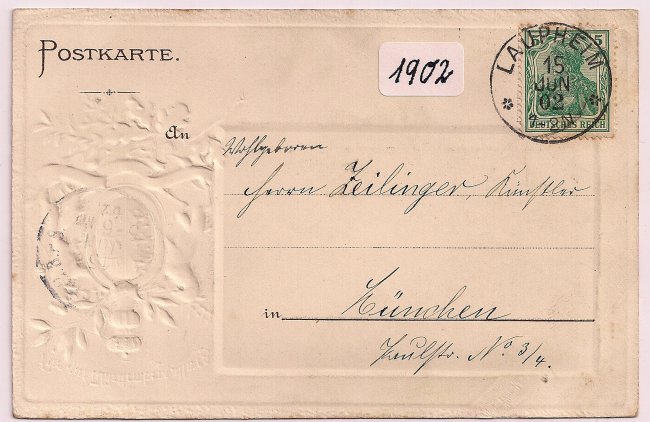 POSTKARTE.
1902
5
LAUPHEIM
15
JUN
02
7-8N.
DEUTSCHES REICH
An
Wohlgeboren
Herrn Zeilinger, Künstler
in München
No 3/4.